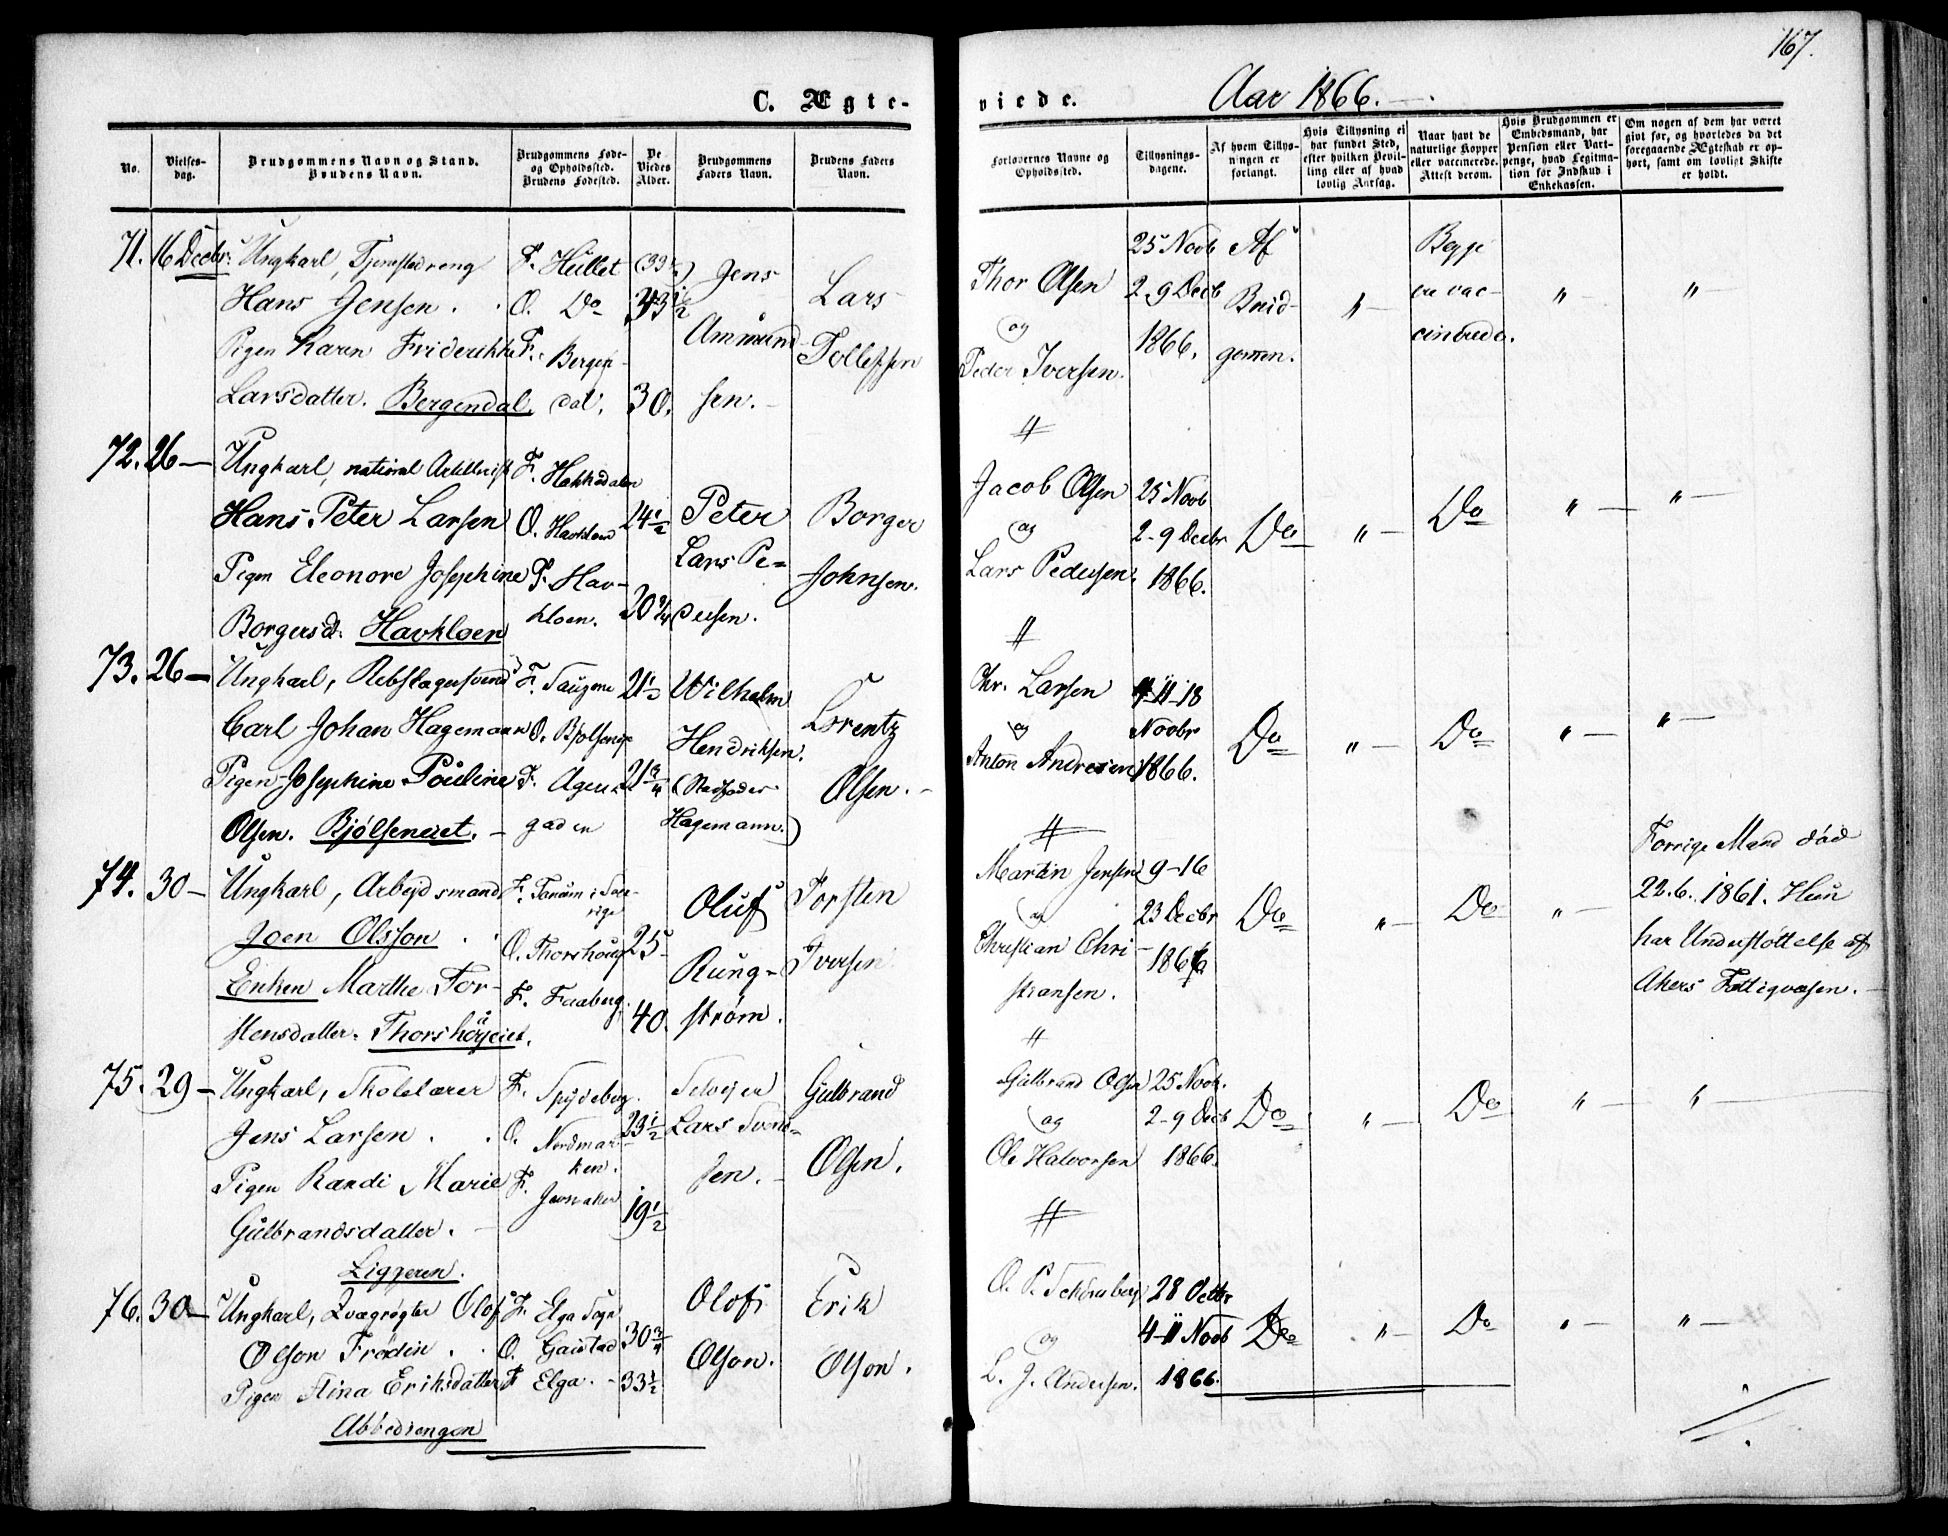 167.
C. Ægte-
viede.
Aar 1866.
No.
Vielses-
dag.
Brudgommens Navn og Stand.
Brudens Navn.
Brudgommens Føde-
og Opholdssted.
Brudens Fødested.
De
Viedes
Alder.
Brudgommens
Faders Navn.
Brudens Faders
Navn.
Forlovernes Navne og
Opholdssted.
Tillysnings-
dagene.
Af hvem Tillys-
ningen er
forlangt.
Hvis Tillysning ei
har fundet Sted,
efter hvilken Bevil-
ling eller af hvad
lovlig Aarsag.
Naar havt de
naturlige Kopper
eller vaccinerede.
Attest derom.
Hvis Brudgommen er
Embedsmand, har
Pension eller Vart-
penge, hvad Legitima-
tion for Indskud i
Enkekassen.
Om nogen af dem har været
gift før, og hvorledes da det
foregaaende Ægteskab er op-
hørt, samt om lovligt Skifte
er holdt.
71. 16 Decbr. Ungkarl, Tjenestedreng F. Hullet Jens Lars
Hans Jensen. O. Do 33½ Ammund- Tollefsen
Pigen Karen Friderikke F. Bergen-
Larsdatter. Bergendal. dal. 30. sen.
Thor Olsen 25 Novb Af " Begge " "
og 2-9 Decb Brud- ere vac-
Peder Iversen. 1866. gommen. cinerede.
72. 26 Ungkarl, national Artillerist F. Hakkedalen
Hans Peter Larsen O. Havkloen 24½ Peter Borger
Pigen Eleonore Josephine F. Hav- Lars Pe- Johnsen.
Borgersd. Havkloen kloen. 20¾ dersen.
Jacob Olsen 25 Novb
og 2-9 Decbr Do " Do " "
Lars Pedersen. 1866.
73. 26 Ungkarl, Rebslagersvend F. 21½ Wilhelm Lorentz
Carl Johan Hagemann O. Hendriksen.
Pigen Josephine Pouline F. Agers 21¾ (Stedfader Olsen.
Olsen. Bjølseneiet. gaden Hagemann.)
Chr. Larsen 4-11-18
og Novbr Do " Do " "
Anton Andresen 1866.
74. 30 Ungkarl, Arbejdsmand F. Tanum i Sve-
rige Oluf Torsten
Joen Olsson. O. Thorshoug 25 Rung- Iversen
Enken Marthe Tor- F. Faaberg.
stensdatter. Thorshøyeiet. 40. strøm.
Martin Jensen 9-16
og 23 Decbr Do " Do "
Christian Chri- 1866
stiansen.
Forrige Mand død
22.6.1861. Hun
har Understøttelse af
Akers Fattigvæsen.
75. 29 Ungkarl, Skolelærer F. Spydeberg. Selvejer Gulbrand
Jens Larsen. O. Nordmar- 23½ Lars Svend-
Pigen Randi Marie ken. sen. Olsen.
F. Jevnaker 19½
Gulbrandsdatter.
Liggeren.
Gulbrand Olsen 25 Novb.
og 2-9 Decb Do " Do " "
Ole Halvorsen 1866.
76. 30 Ungkarl, Qvægrøgter Olof F. Elga Sogn Olof Erik
Olson Frødin. O. Gaustad 30¾ Olson. Olson.
Pigen Stina Eriksdatter F Elga. 33½
Abbediengen
O. P. 28 Octbr
og 4-11 Novb Do " Do " "
L. J. Andersen. 1866.